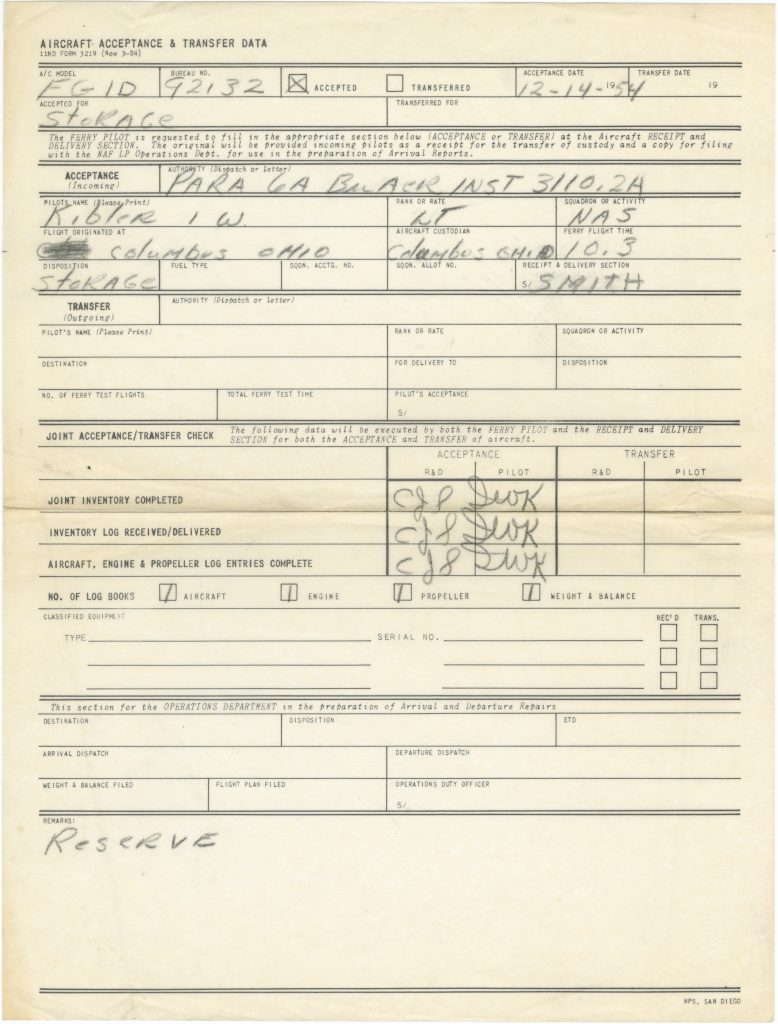 AIRCRAFT ACCEPTANCE & TRANSFER DATA
11ND FORM 3219 (New 3-54)
A/C MODEL BUREAU NO. ACCEPTANCE DATE TRANSFER DATE
FG1D 92132 ACCEPTED TRANSFERRED 12-14-1954 19
ACCEPTED FOR TRANSFERRED FOR
STORAGE
The FERRY PILOT is requested to fill in the appropriate section below (ACCEPTANCE or TRANSFER) at the Aircraft RECEIPT and
DELIVERY SECTION. The original will be provided incoming pilots as a receipt for the transfer of custody and a copy for filing
with the NAF LP Operations Dept. for use in the preparation of Arrival Reports.
AUTHORITY (Dispatch or letter)
ACCEPTANCE PARA 6A BUAER INST 3110.2A
(Incoming)
PILOTS NAME (Please Print) RANK OR RATE SQUADRON OR ACTIVITY
Kibler I W. LT NAS
FLIGHT ORIGINATED AT AIRCRAFT CUSTODIAN FERRY FLIGHT TIME
Columbus OHIO Columbus OHIO 10.3
DISPOSITION FUEL TYPE SQDN. ACCTG. NO. SQDN. ALLOT NO. RECEIPT & DELIVERY SECTION
STORAGE S/ SMITH
AUTHORITY (Dispatch or letter)
TRANSFER
(Outgoing)
PILOT'S NAME (Please Print) RANK OR RATE SQUADRON OR ACTIVITY
DESTINATION FOR DELIVERY TO DISPOSITION
NO. OF FERRY TEST FLIGHTS TOTAL FERRY TEST TIME PILOT'S ACCEPTANCE
S/
JOINT ACCEPTANCE/TRANSFER CHECK The following data will be executed by both the FERRY PILOT and the RECEIPT and DELIVERY
SECTION for both the ACCEPTANCE and TRANSFER of aircraft.
ACCEPTANCE TRANSFER
R&D PILOT R&D PILOT
JOINT INVENTORY COMPLETED
INVENTORY LOG RECEIVED/DELIVERED
AIRCRAFT, ENGINE & PROPELLER LOG ENTRIES COMPLETE
NO. OF LOG BOOKS 1 AIRCRAFT 1 ENGINE 1 PROPELLER 1 WEIGHT & BALANCE
CLASSIFIED EQUIPMENT REC'D TRANS.
TYPE SERIAL NO.
This section for the OPERATIONS DEPARTMENT in the preparation of Arrival and Departure Repairs
DESTINATION DISPOSITION ETD
ARRIVAL DISPATCH DEPARTURE DISPATCH
WEIGHT & BALANCE FILED FLIGHT PLAN FILED OPERATIONS DUTY OFFICER
S/
REMARKS:
RESERVE
NPS, SAN DIEGO